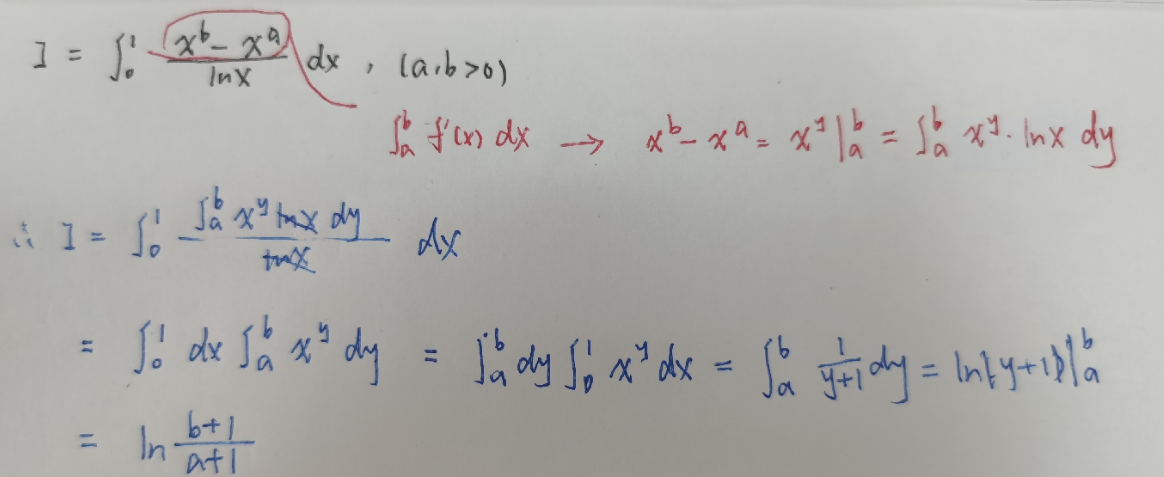 I = ∫₀¹ (x^b - x^a)/(ln x) dx , (a,b>0)
∫_a^b f'(x) dx → x^b - x^a = x^y |_a^b = ∫_a^b x^y · ln x dy
∴ I = ∫₀¹ (∫_a^b x^y ln x dy)/(ln x) dx
= ∫₀¹ dx ∫_a^b x^y dy = ∫_a^b dy ∫₀¹ x^y dx = ∫_a^b 1/(y+1) dy = ln(y+1)|_a^b
= ln (b+1)/(a+1)